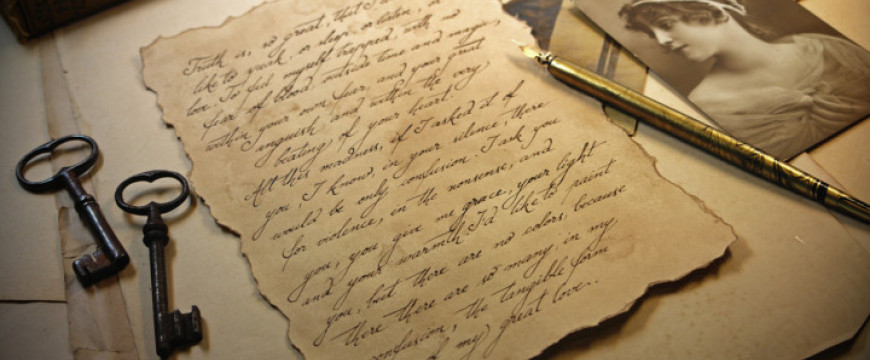 Truth is, so great, that I
like to speak, or sleep, or listen, or
love. To feel myself trapped, with no
fear of blood, outside time and magic,
within your own fear, and your great
anguish, and within the very
beating of your heart.
All this madness, if I asked it of
you, I know, in your silence, there
would be only confusion. I ask you
for violence, in the nonsense, and
you, you give me grace, your light
and your warmth. I'd like to paint
you, but there are no colors, because
there there are so many, in my
confusion, the tangible form
of my great love..